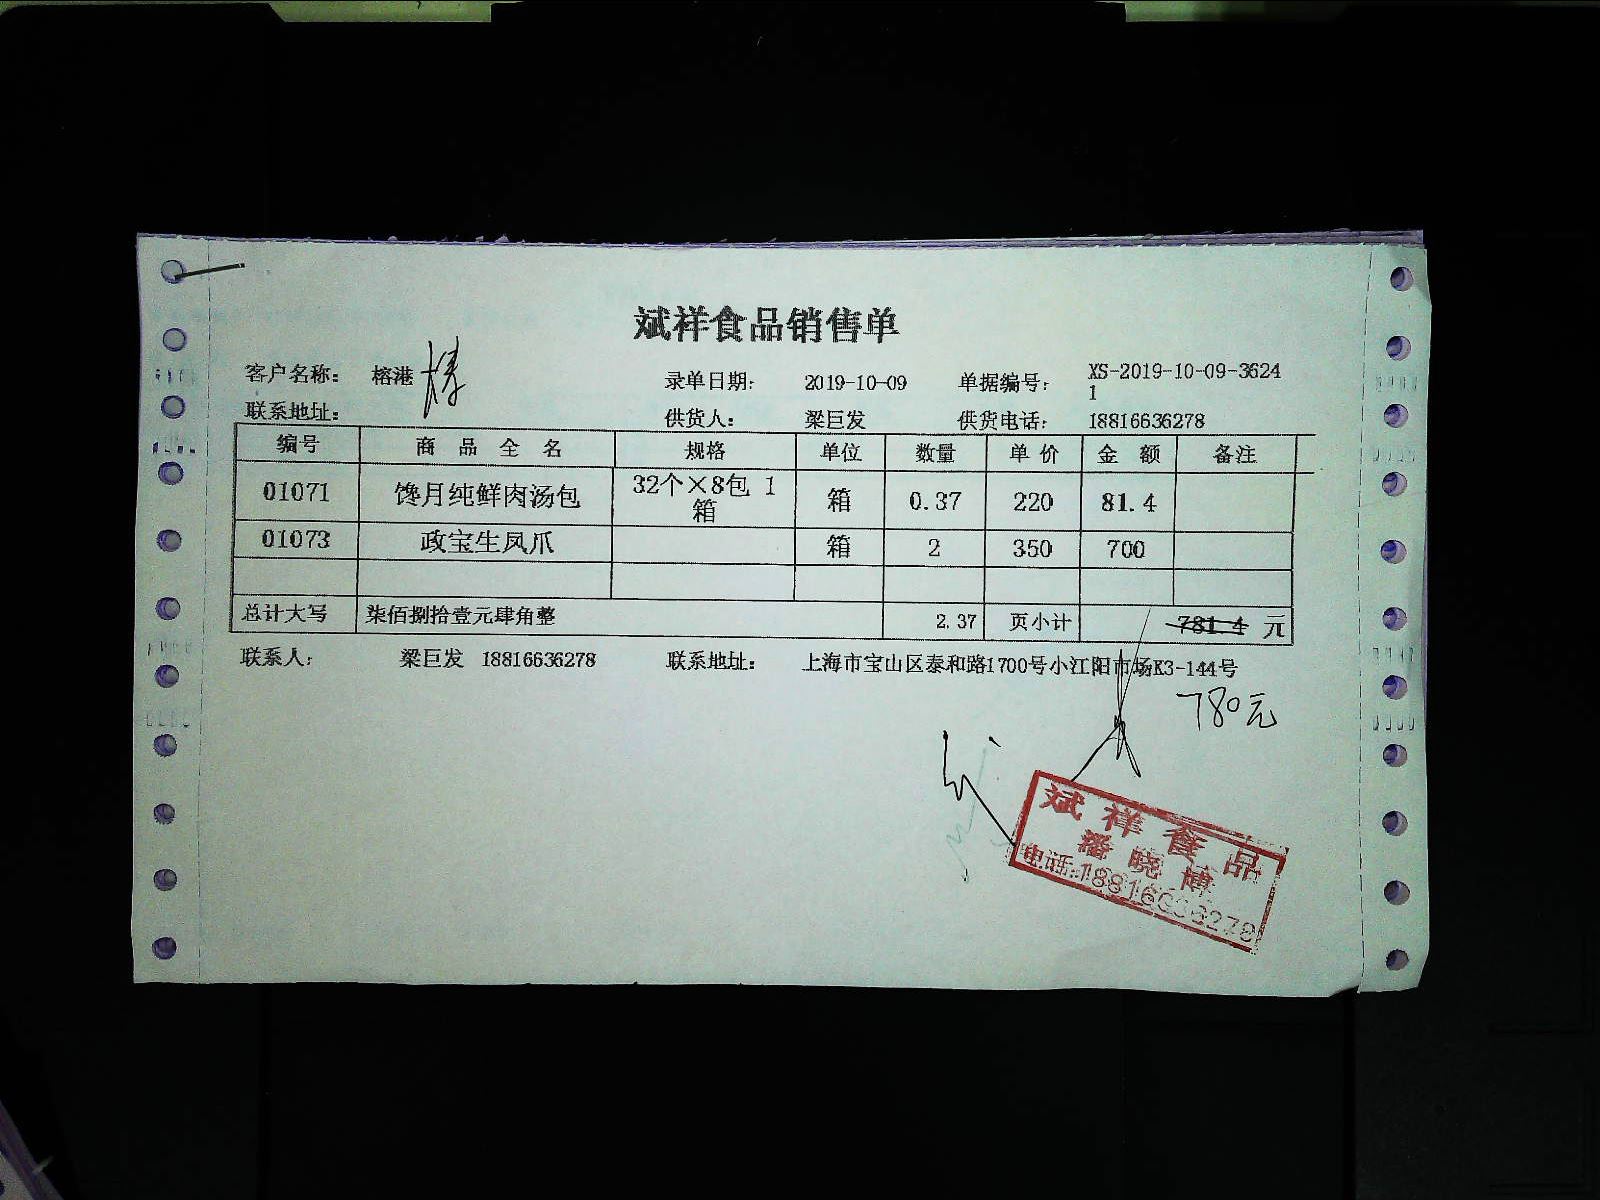 斌祥食品销售单
客户名称： 榕港 录单日期： 2019-10-09 单据编号： XS-2019-10-09-3624
1
联系地址： 供货人： 梁巨发 供货电话： 18816636278
编号 商 品 全 名 规格 单位 数量 单 价 金 额 备注
01071 馋月纯鲜肉汤包 32个×8包 1 箱 0.37 220 81.4
箱
01073 政宝生凤爪 箱 2 350 700
总计大写 柒佰捌拾壹元肆角整 2.37 页小计 781.4 元
联系人： 梁巨发 18816636278 联系地址： 上海市宝山区泰和路1700号小江阳市场K3-144号
780元
斌祥食品
潘晓博
电话:18816636278